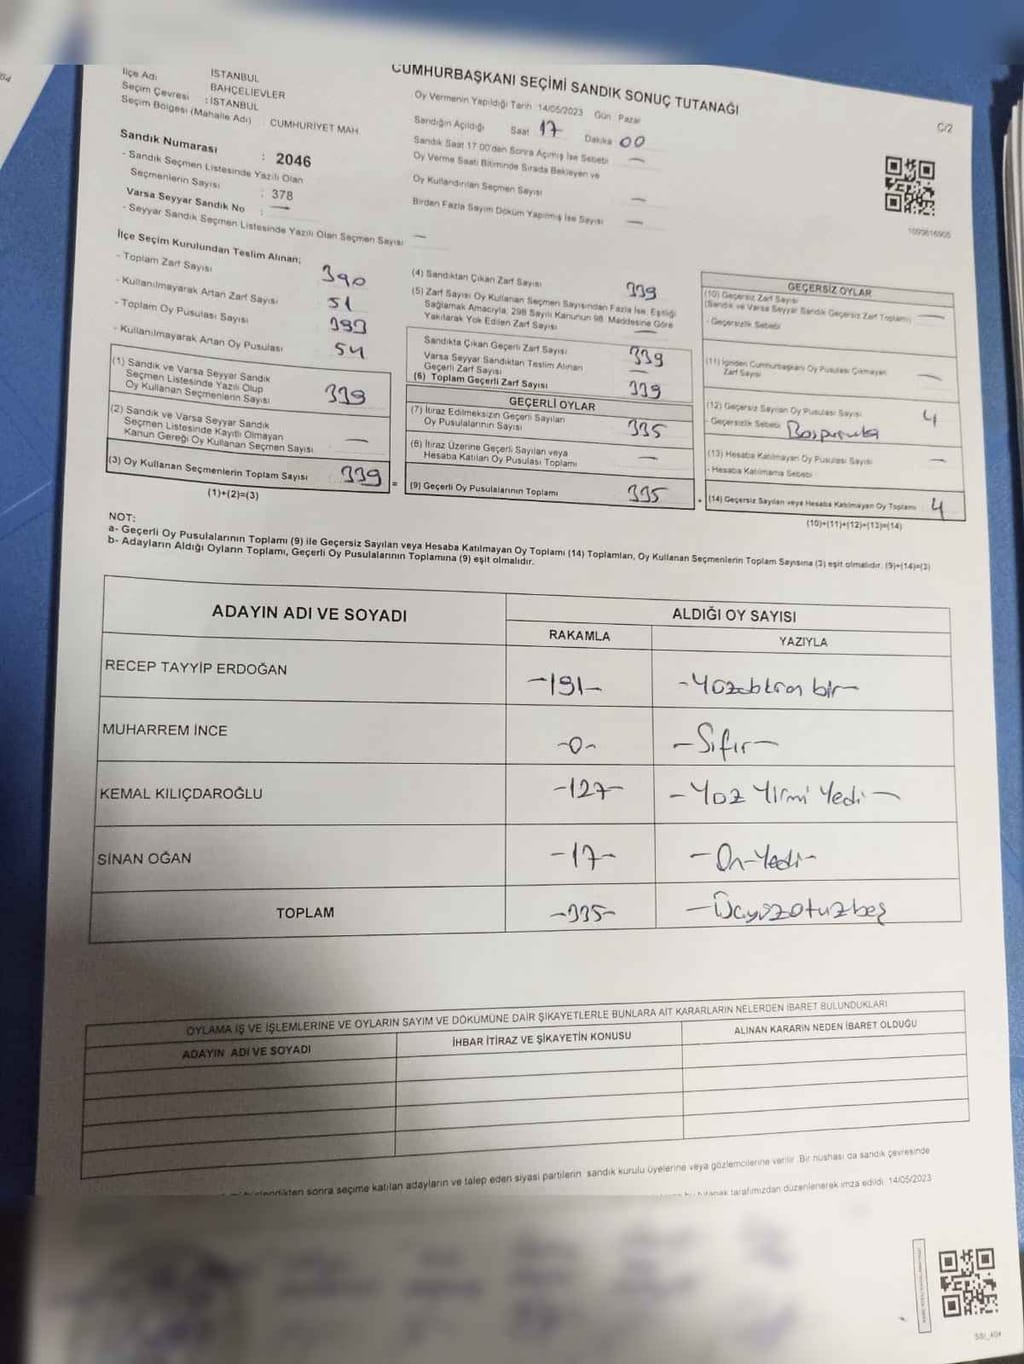 CUMHURBAŞKANI SEÇİMİ SANDIK SONUÇ TUTANAĞI
C/2
İlçe Adı İSTANBUL
BAHÇELİEVLER
Seçim Çevresi : İSTANBUL
Seçim Bölgesi (Mahalle Adı) CUMHURİYET MAH.
Sandık Numarası : 2046
- Sandık Seçmen Listesinde Yazılı Olan
Seçmenlerin Sayısı : 378
Varsa Seyyar Sandık No : —
- Seyyar Sandık Seçmen Listesinde Yazılı Olan Seçmen Sayısı —
Oy Vermenin Yapıldığı Tarih 14/05/2023 Gün Pazar
Sandığın Açıldığı Saat 17 Dakika 00
Sandık Saat 17:00'den Sonra Açılmış İse Sebebi —
Oy Verme Saati Bitiminde Sırada Bekleyen ve
Oy Kullandırılan Seçmen Sayısı —
Birden Fazla Sayım Döküm Yapılmış İse Sayısı —
1099616905
İlçe Seçim Kurulundan Teslim Alınan;
- Toplam Zarf Sayısı 390
- Kullanılmayarak Artan Zarf Sayısı 51
- Toplam Oy Pusulası Sayısı 393
- Kullanılmayarak Artan Oy Pusulası 54
(1) Sandık ve Varsa Seyyar Sandık
Seçmen Listesinde Yazılı Olup
Oy Kullanan Seçmenlerin Sayısı 339
(2) Sandık ve Varsa Seyyar Sandık
Seçmen Listesinde Kayıtlı Olmayan
Kanun Gereği Oy Kullanan Seçmen Sayısı —
(3) Oy Kullanan Seçmenlerin Toplam Sayısı 339
(1)+(2)=(3)
=
(4) Sandıktan Çıkan Zarf Sayısı 339
(5) Zarf Sayısı Oy Kullanan Seçmen Sayısından Fazla İse, Eşitliği
Sağlamak Amacıyla, 298 Sayılı Kanunun 98. Maddesine Göre
Yakılarak Yok Edilen Zarf Sayısı —
Sandıkta Çıkan Geçerli Zarf Sayısı 339
Varsa Seyyar Sandıktan Teslim Alınan
Geçerli Zarf Sayısı —
(6) Toplam Geçerli Zarf Sayısı 339
GEÇERLİ OYLAR
(7) İtiraz Edilmeksizin Geçerli Sayılan
Oy Pusulalarının Sayısı 335
(8) İtiraz Üzerine Geçerli Sayılan veya
Hesaba Katılan Oy Pusulası Toplamı —
(9) Geçerli Oy Pusulalarının Toplamı 335
+
GEÇERSİZ OYLAR
(10) Geçersiz Zarf Sayısı
(Sandık ve Varsa Seyyar Sandık Geçersiz Zarf Toplamı) —
- Geçersizlik Sebebi
(11) İçinden Cumhurbaşkanı Oy Pusulası Çıkmayan
Zarf Sayısı —
(12) Geçersiz Sayılan Oy Pusulası Sayısı 4
- Geçersizlik Sebebi
(13) Hesaba Katılmayan Oy Pusulası Sayısı —
- Hesaba Katılmama Sebebi
(14) Geçersiz Sayılan veya Hesaba Katılmayan Oy Toplamı 4
(10)+(11)+(12)+(13)=(14)
NOT:
a- Geçerli Oy Pusulalarının Toplamı (9) ile Geçersiz Sayılan veya Hesaba Katılmayan Oy Toplamı (14) Toplamları, Oy Kullanan Seçmenlerin Toplam Sayısına (3) eşit olmalıdır. (9)+(14)=(3)
b- Adayların Aldığı Oyların Toplamı, Geçerli Oy Pusulalarının Toplamına (9) eşit olmalıdır.
ADAYIN ADI VE SOYADI ALDIĞI OY SAYISI
RAKAMLA YAZIYLA
RECEP TAYYİP ERDOĞAN -191- -Yüzdoksan bir-
MUHARREM İNCE -0- -Sıfır-
KEMAL KILIÇDAROĞLU -127- -Yüz Yirmi Yedi-
SİNAN OĞAN -17- -On-Yedi-
TOPLAM -335- -Üçyüzotuzbeş
OYLAMA İŞ VE İŞLEMLERİNE VE OYLARIN SAYIM VE DÖKÜMÜNE DAİR ŞİKAYETLERLE BUNLARA AİT KARARLARIN NELERDEN İBARET BULUNDUKLARI
ADAYIN ADI VE SOYADI İHBAR İTİRAZ VE ŞİKAYETİN KONUSU ALINAN KARARIN NEDEN İBARET OLDUĞU
sonra seçime katılan adayların ve talep eden siyasi partilerin sandık kurulu üyelerine veya gözlemcilerine verilir. Bir nüshası da sandık çevresinde
tutanak tarafımızdan düzenlenerek imza edildi. 14/05/2023